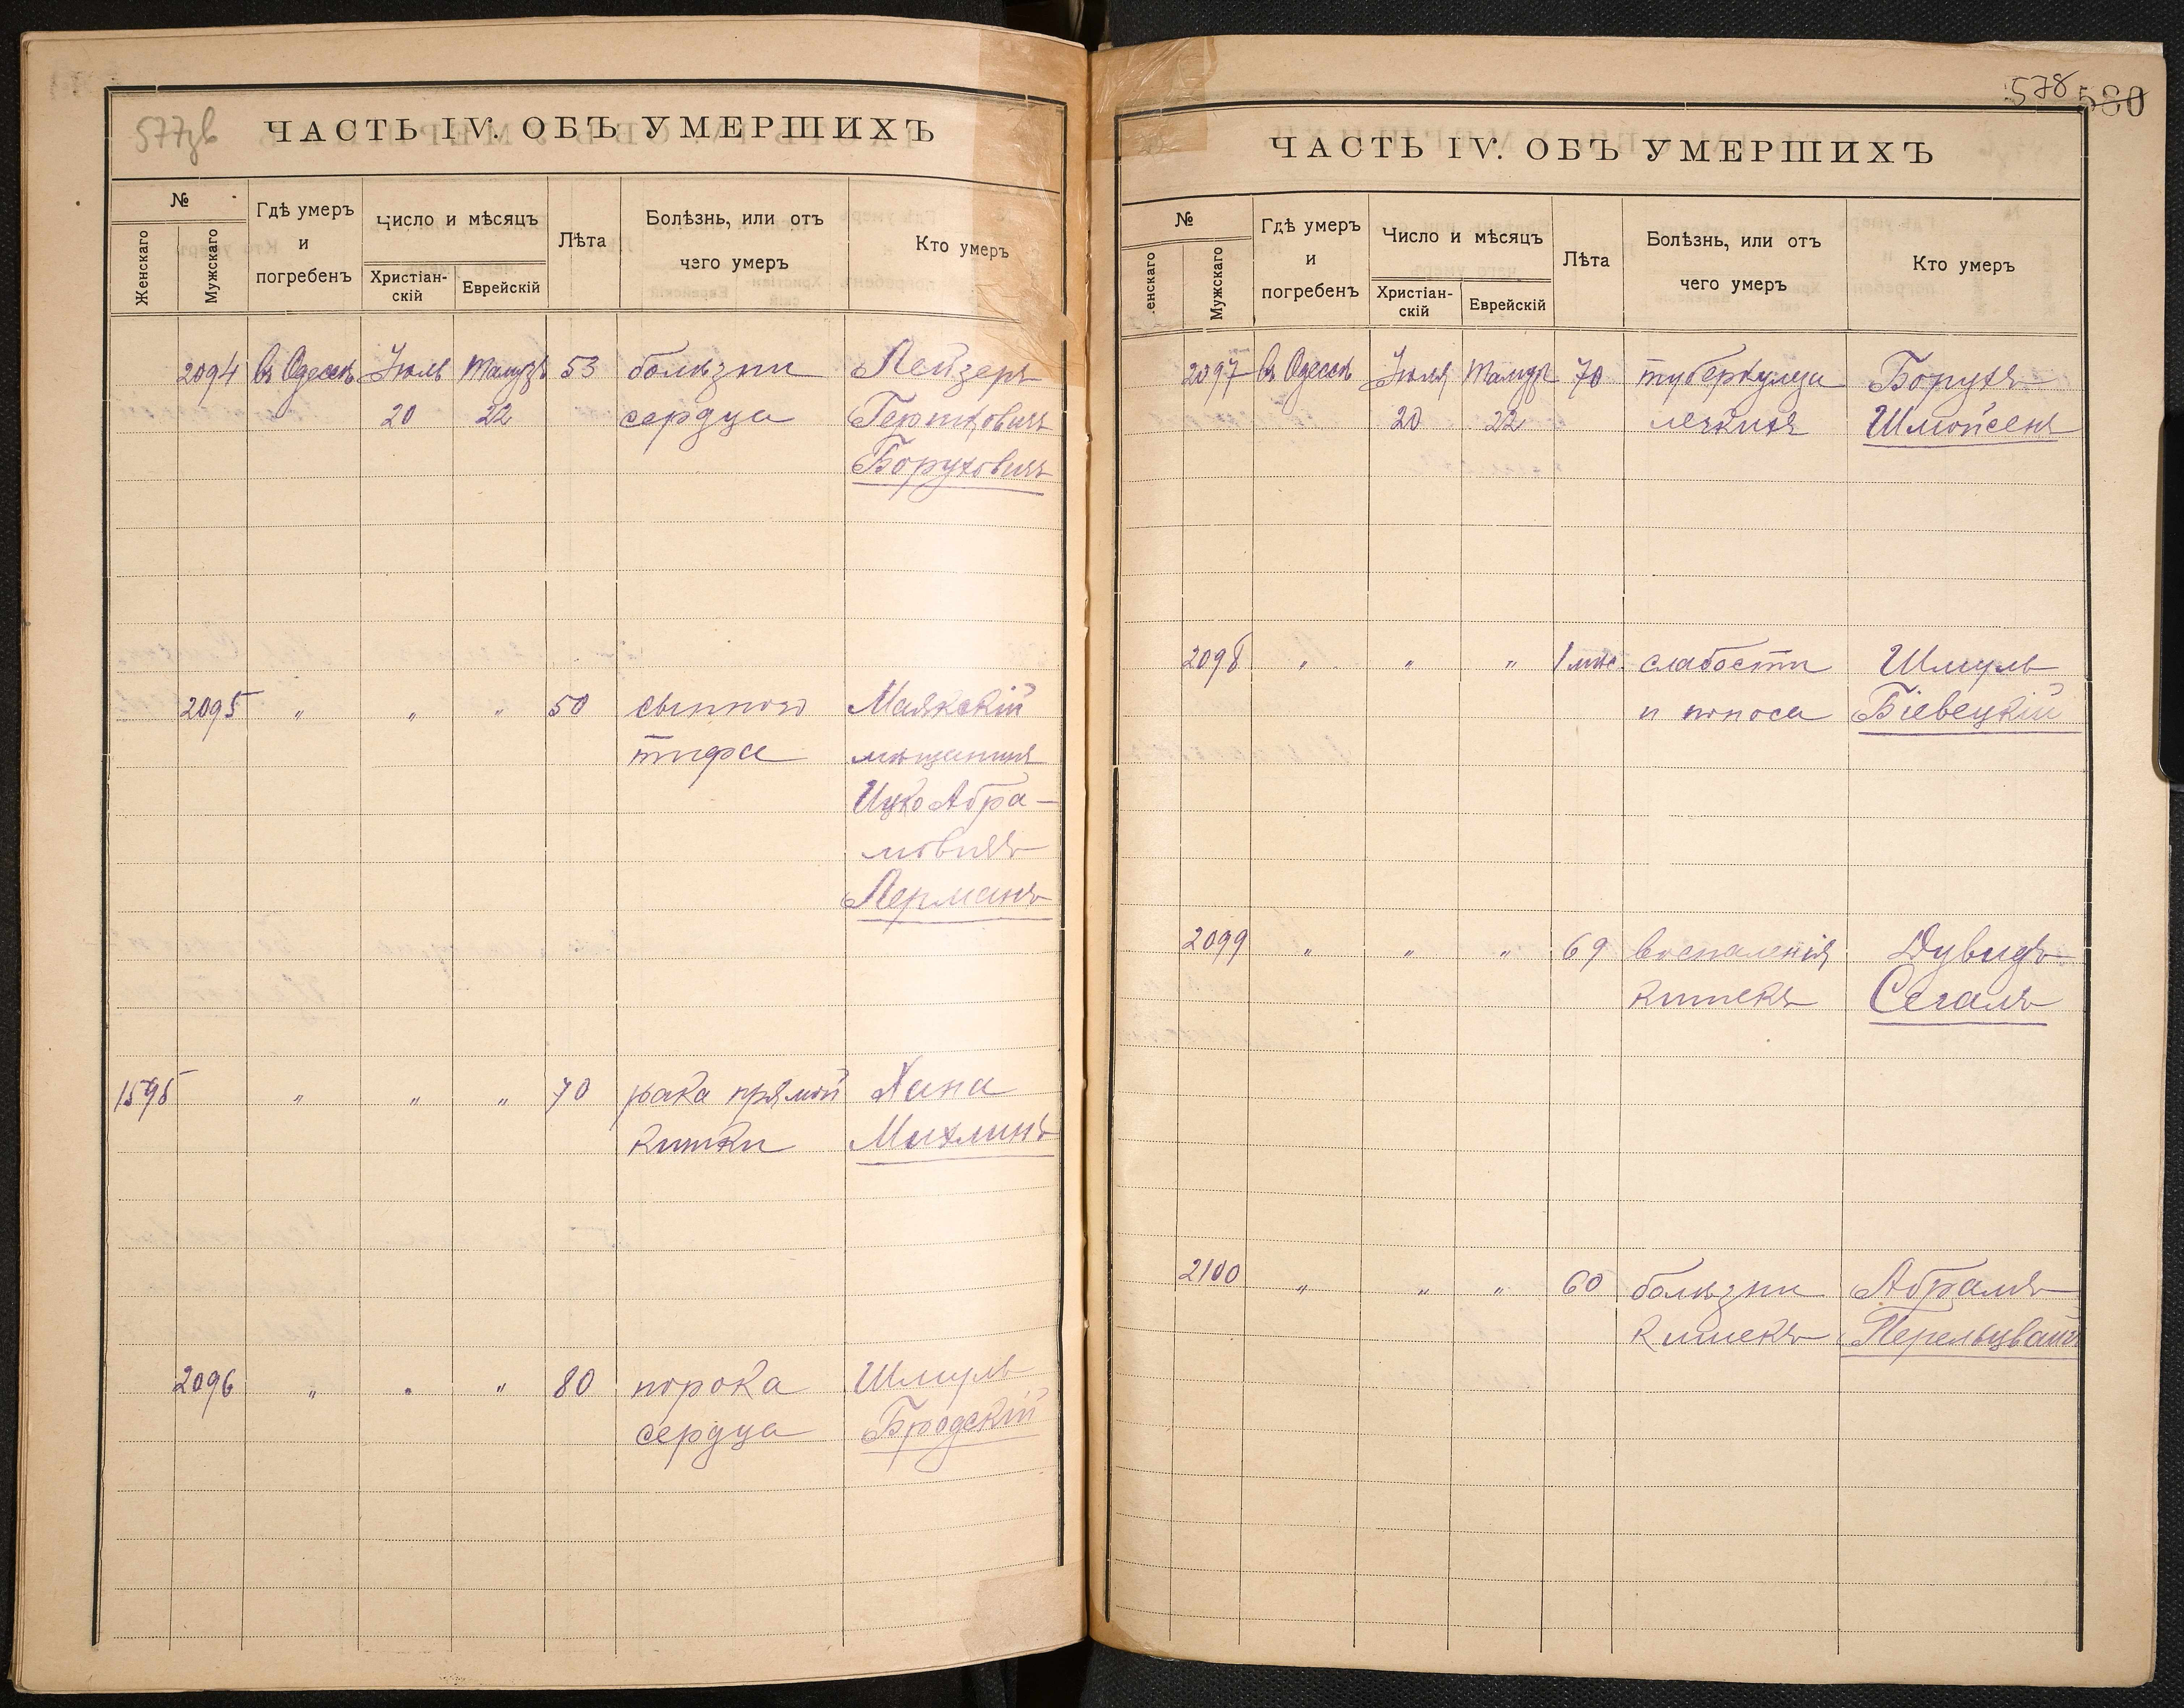 577зв
ЧАСТЬ IV. ОБЪ УМЕРШИХЪ
№
Женскаго
Мужскаго
Гдѣ умеръ
и
погребенъ
Число и мѣсяцъ
Христіан-
скій
Еврейскій
Лѣта
Болѣзнь, или отъ
чего умеръ
Кто умеръ
2094 въ Одессѣ Іюль Тамузъ 53 болѣзни Лейзеръ
20 22 сердца Гершковичъ
Боруховичъ
2095 " " " 50 сыпного Маякскій
тифа мѣщанинъ
Ицко Абра-
мовичъ
Лерманъ
1595 " " " 70 рака прямой Хана
кишки Михлинъ
2096 " " " 80 порока Шмуль
сердца Бродскій
578 580
ЧАСТЬ IV. ОБЪ УМЕРШИХЪ
№
енскаго
Мужскаго
Гдѣ умеръ
и
погребенъ
Число и мѣсяцъ
Христіан-
скій
Еврейскій
Лѣта
Болѣзнь, или отъ
чего умеръ
Кто умеръ
2097 въ Одессѣ Іюля Тамузъ 70 туберкулеза Борухъ
20 22 легкихъ Шмойсенъ
2098 " " " 1 мѣс. слабости Шмуль
и поноса Біевецкій
2099 " " " 69 воспаленія Дувидъ
кишекъ Сегалъ
2100 " " " 60 болѣзни Абрамъ
кишекъ Перельцвайгъ